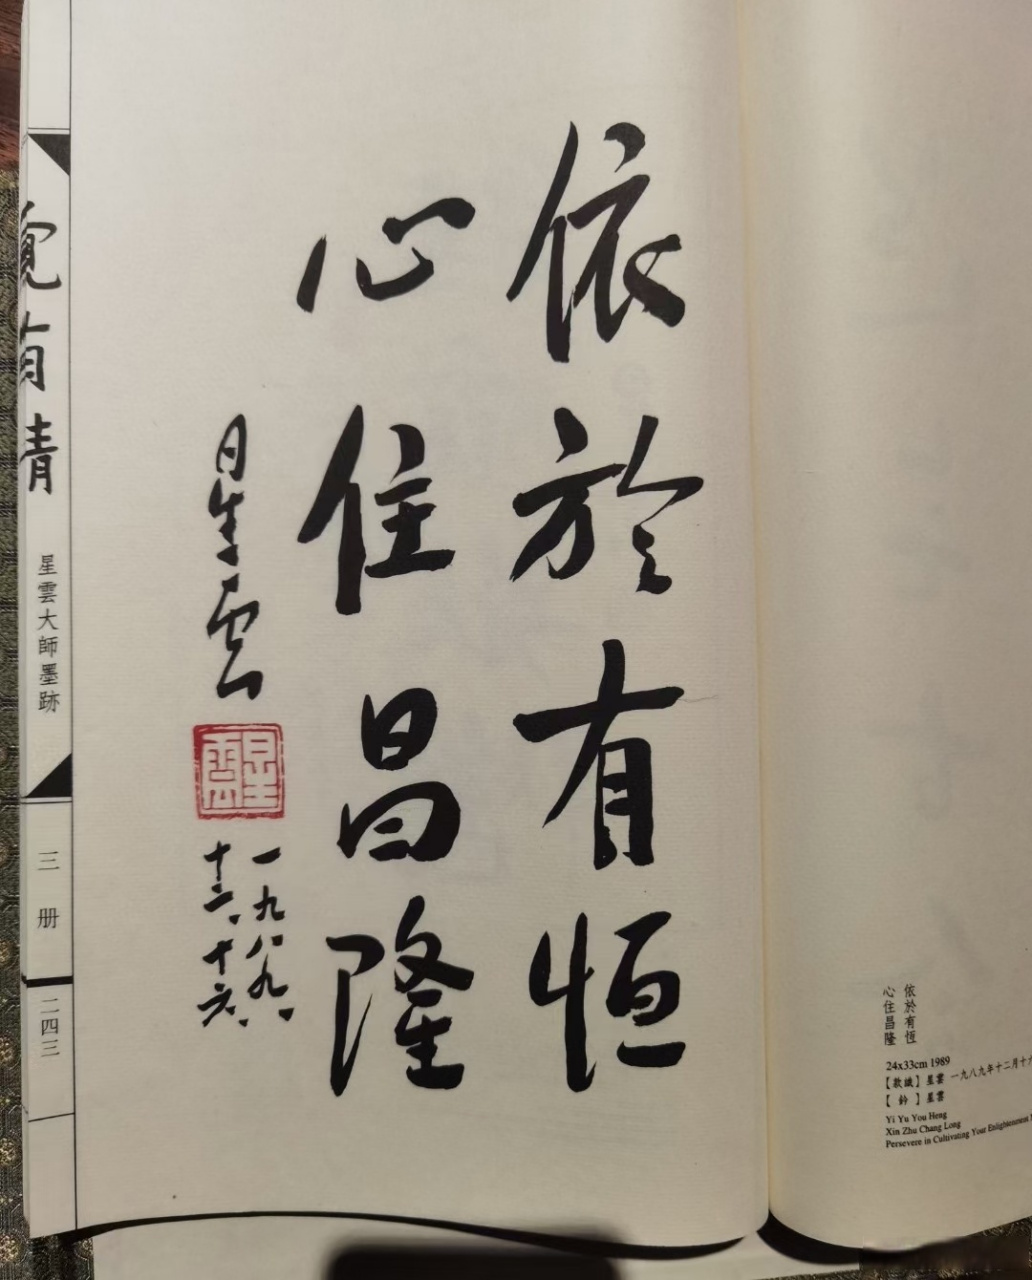 依於有恒
心住昌隆
星雲
星雲
一九八九、
十二、十六、
覺有情
星雲大師墨跡
三册
二四三
依於有恆
心住昌隆
24x33cm 1989
【款識】星雲 一九八九年十二月十六
【鈐】星雲
Yi Yu You Heng
Xin Zhu Chang Long
Persevere in Cultivating Your Enlightenment